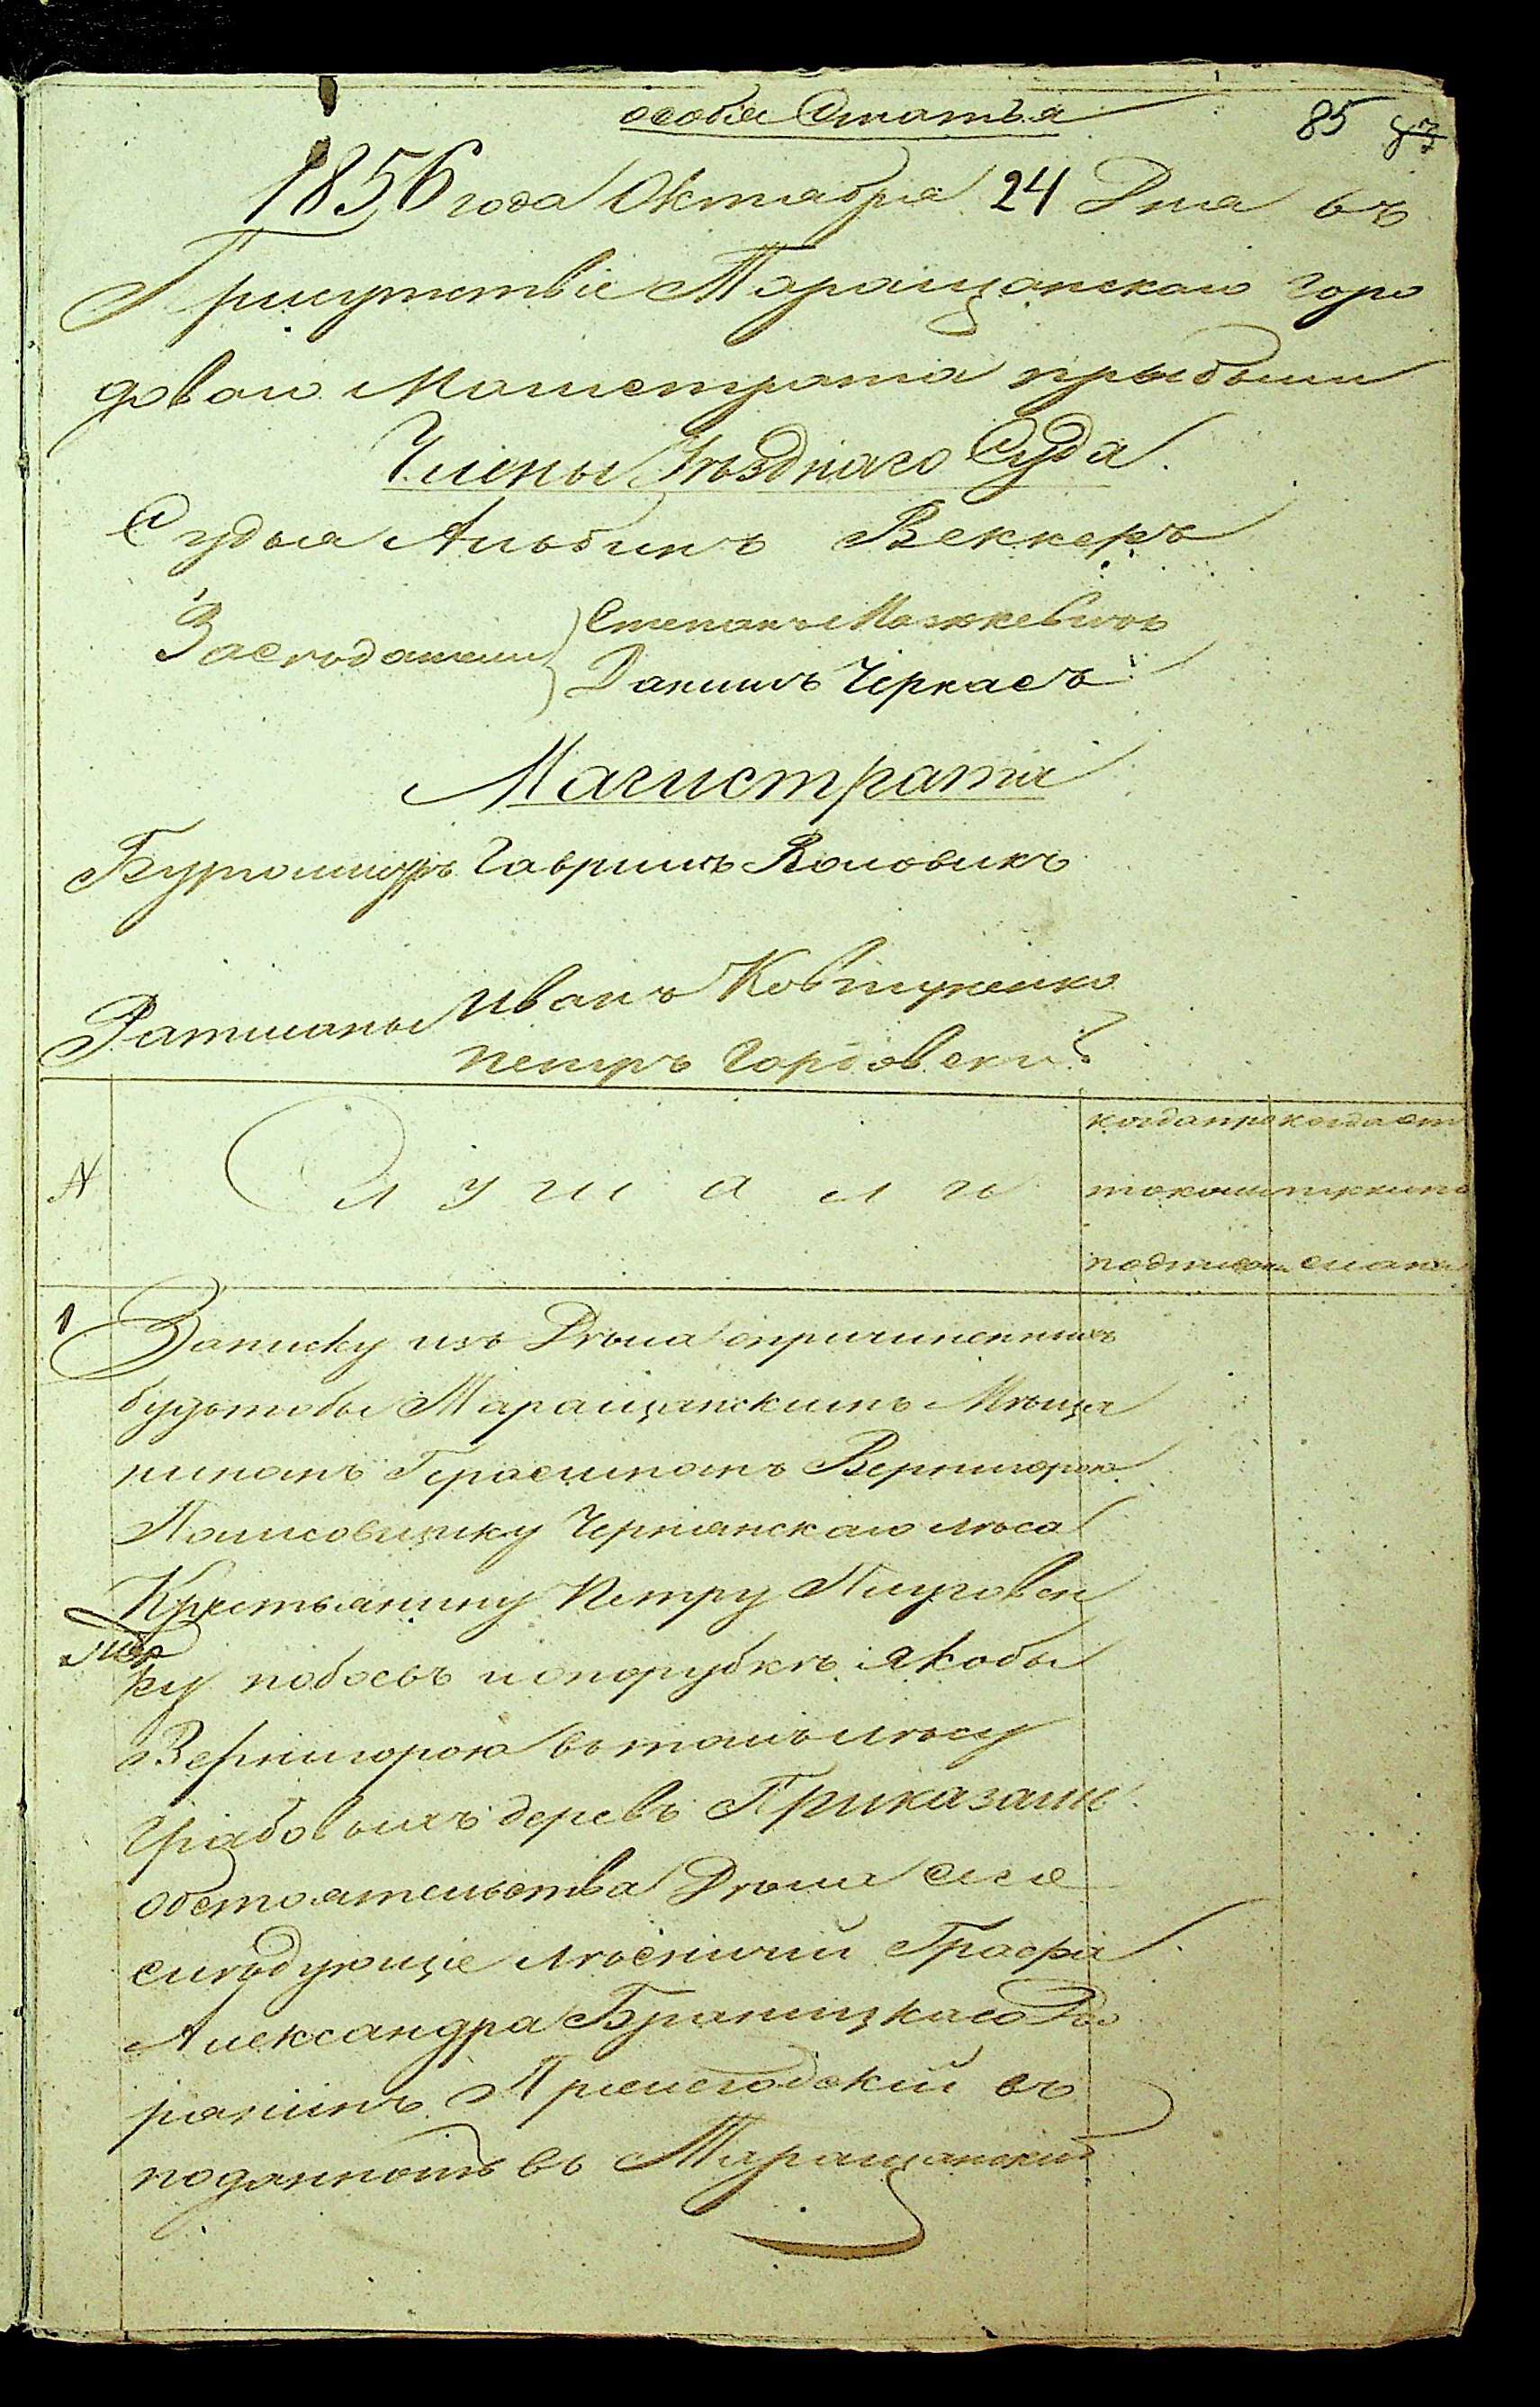 особая Статья
85 83
1856 года Октября 24 Дня въ
Присутствіе Таращанскаго Горо
доваго Магистрата прыбыли
Члены Уѣзднаго Суда
Судья Альбинъ Веккеръ
Степанъ Можкевичъ
Заседатели
Данилъ Черкасъ
Магистрата
Бургомистръ Гаврилъ Воловикъ
Иванъ Ковтуненко
Ратманы
Петръ Гордовскій
когда про когда от
№ Слушали токолъ пущено
подписанъ
1 Записку изъ Дѣла опричиненныхъ
будьтобы Таращанскимъ Мѣща
ниномъ Герасимомъ Вернигорою
Полисовщику Чернянскаго лѣса
Крестьянину Петру Плуговен
ку побоевъ и опорубкѣ якобы
Вернигорою вътомълѣсу
Грабовыхъ деревъ Приказали
обстоятельства Дѣла сего
слѣдующіе лѣсничий Графа
Александра Браницкаго
въ
поданномъ въ Таращанскій